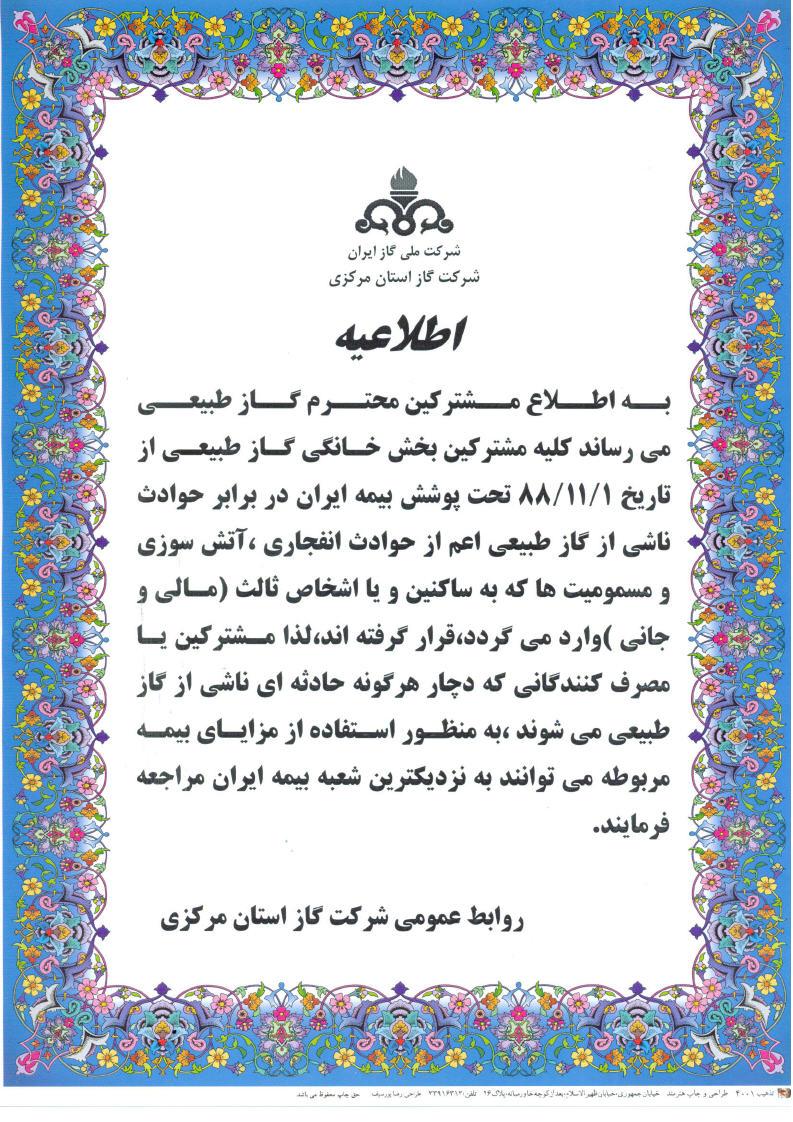 شرکت ملی گاز ایران
شرکت گاز استان مرکزی
اطلاعیه
به اطلاع مشترکین محترم گاز طبیعی
می رساند کلیه مشترکین بخش خانگی گاز طبیعی از
تاریخ ۸۸/۱۱/۱ تحت پوشش بیمه ایران در برابر حوادث
ناشی از گاز طبیعی اعم از حوادث انفجاری ،آتش سوزی
و مسمومیت ها که به ساکنین و یا اشخاص ثالث (مالی و
جانی )وارد می گردد،قرار گرفته اند،لذا مشترکین یا
مصرف کنندگانی که دچار هرگونه حادثه ای ناشی از گاز
طبیعی می شوند ،به منظور استفاده از مزایای بیمه
مربوطه می توانند به نزدیکترین شعبه بیمه ایران مراجعه
فرمایند.
روابط عمومی شرکت گاز استان مرکزی
تذهیب ۴۰۰۱ طراحی و چاپ هنرمند خیابان جمهوری،خیابان ظهیرالاسلام،بعد از کوچه خاورسانه،پلاک ۱۶ تلفن:۳۳۹۱۶۳۱۲ طراحی رضا پورسیف حق چاپ محفوظ می باشد